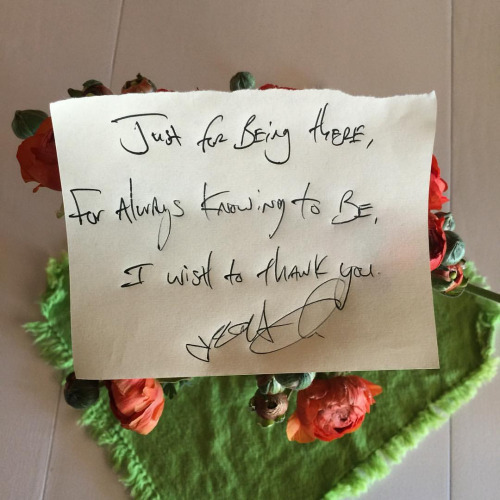 Just for Being there,
For Always Knowing to Be,
I wish to thank you.